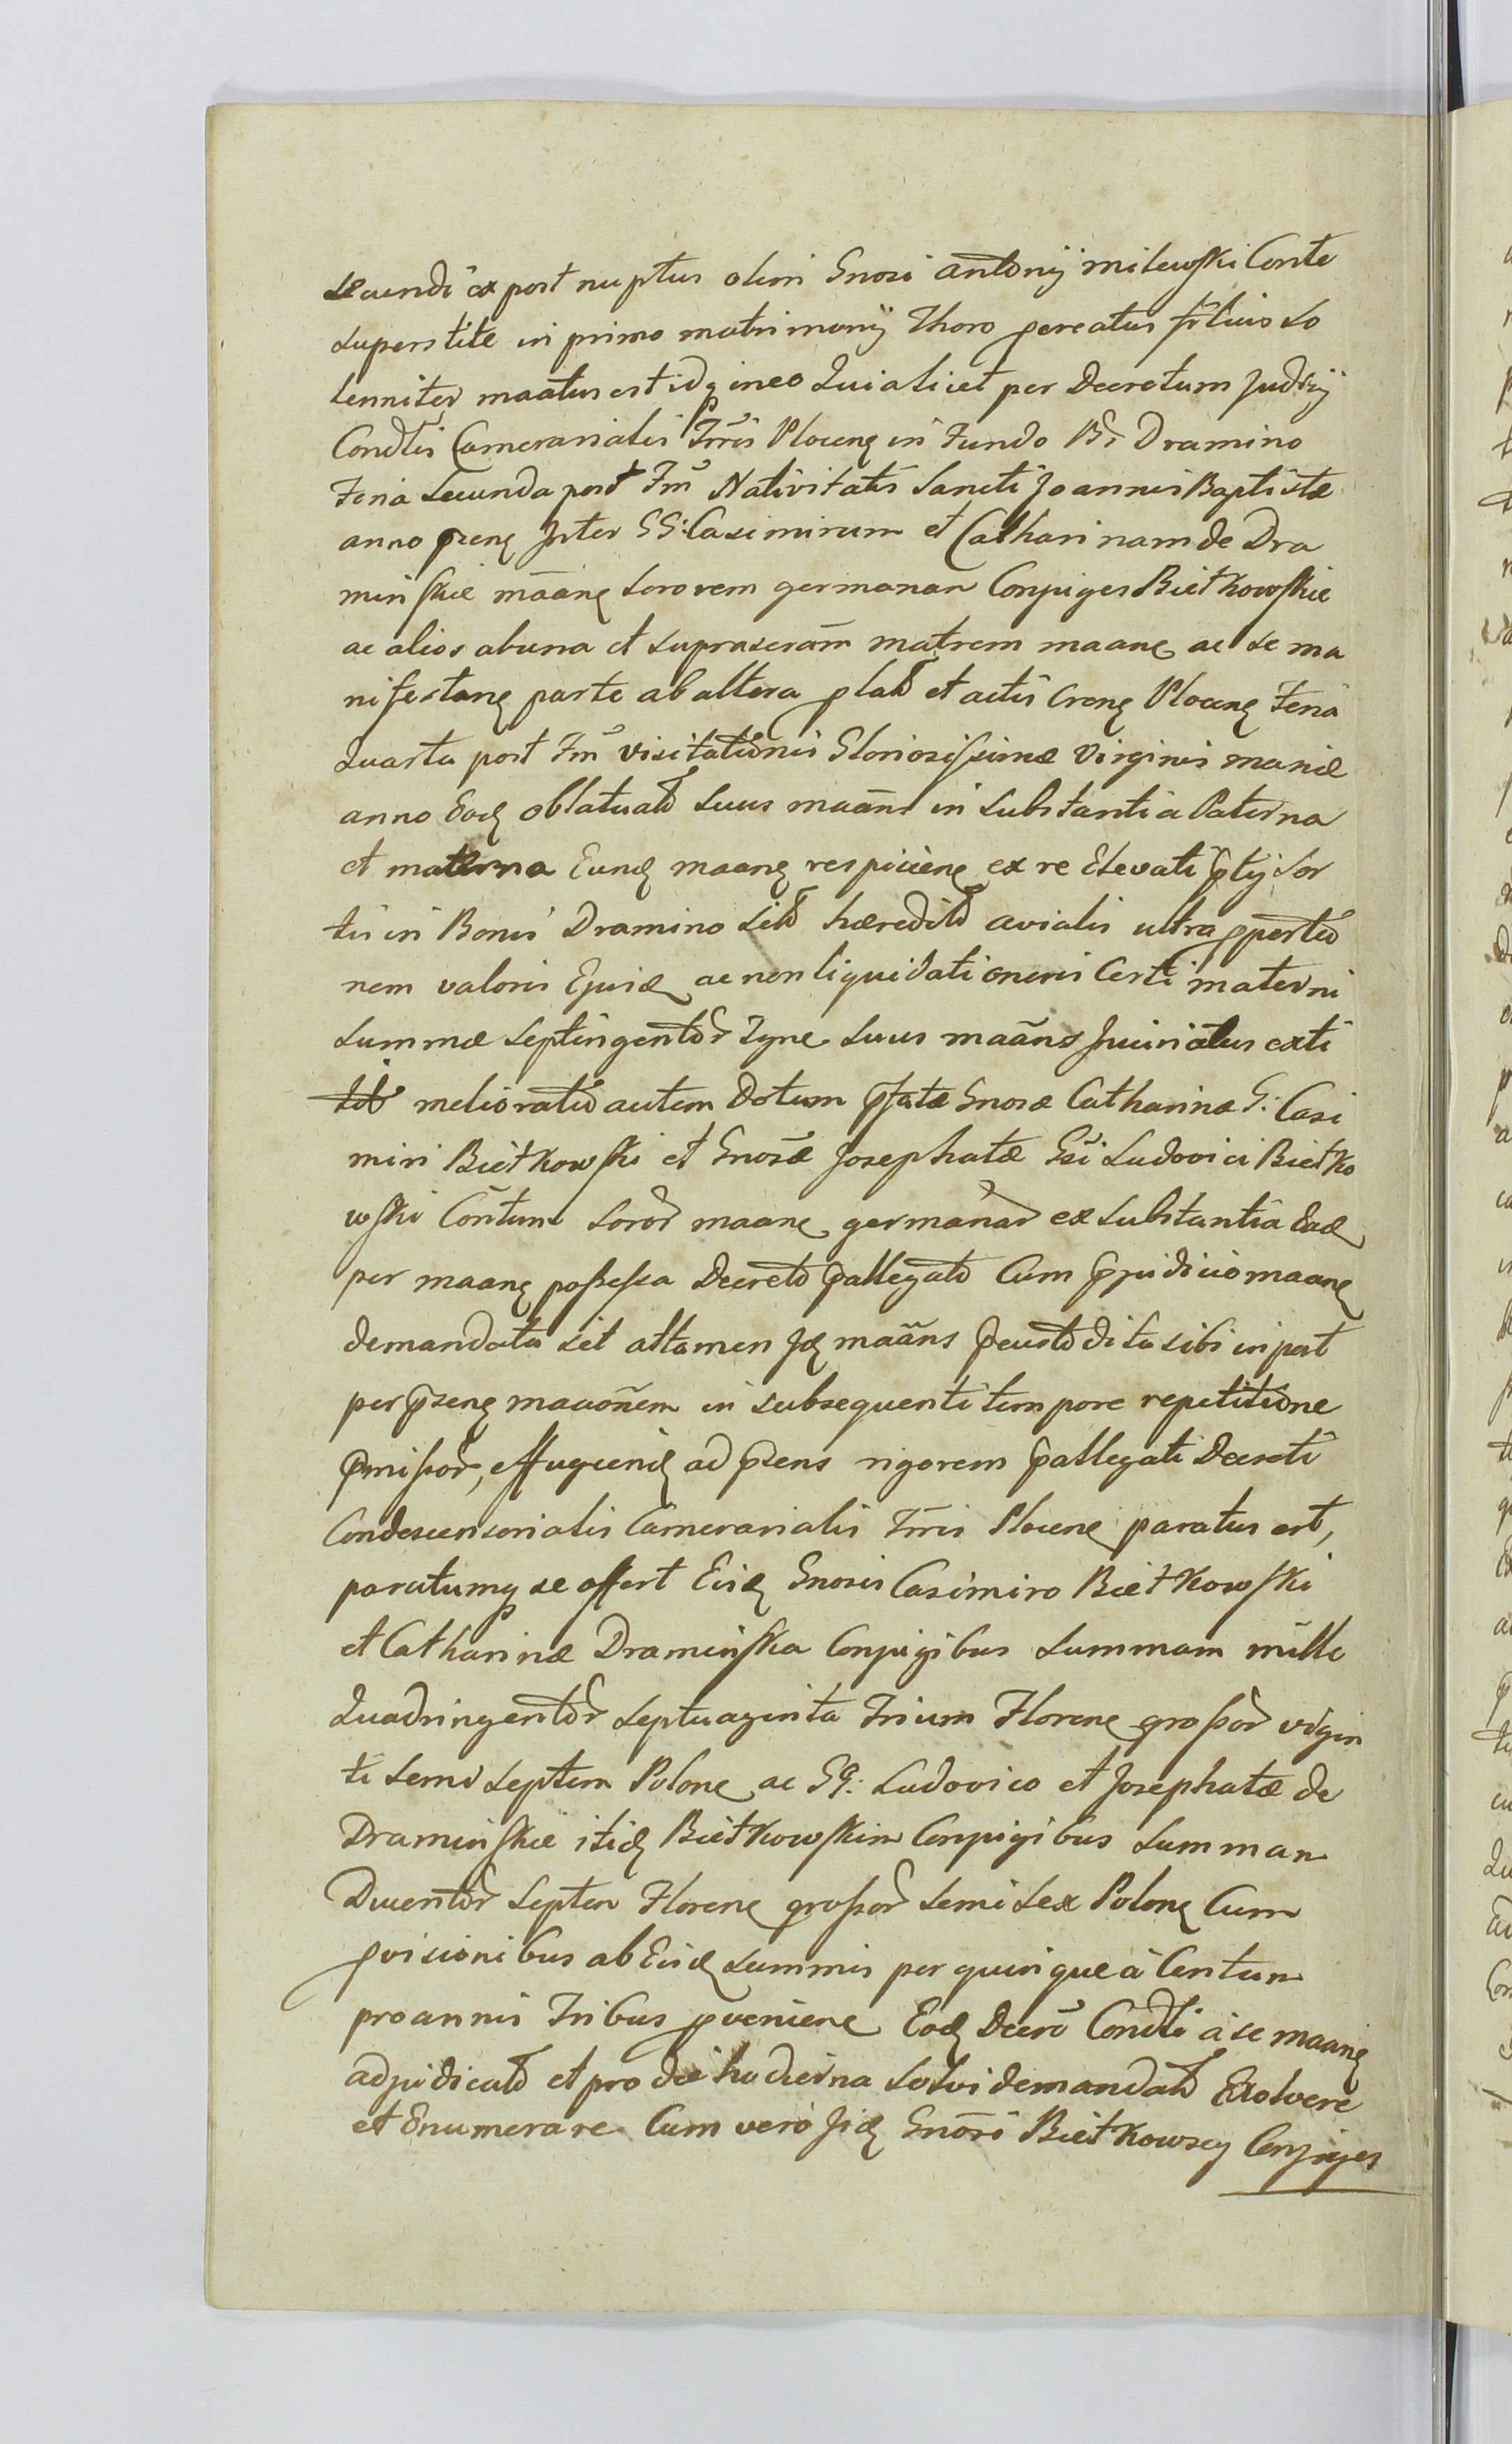 secundi ex post nuptus olim Gnosi Antonij Milewski Conte
superstite in primo matrimonij Thoro pereatus fr̃ lius so
lenniter maãtus est idq ineo Quia licet per Decretum Judicij
Condtis Camerarialis Trris Plocen in Fundo Br Dramino
Feria Secunda post Fm Nativitatis Sancti Joannis Baptistæ
anno præsen Inter GG: Casimirum et Catharinam de Dra
minskie mããn sororem germanam Conjuges Bietkowskie
ac alios ab una et suprascram matrem maan ac se ma
nifestan parte ab altera plato et actis Cren Plocen Feria
Quarta post Fm Visitationis Gloriosissimæ Virginis Mariæ
anno Eod oblatuato suus maãns in substantia Paterna
et materna Eund maan respicien ex re Elevati ptij Sor
tis in Bonis Dramino sito hæredito avialis ultra pportio
nem valoris Ejusd ac non liquidationeris Certi materni
summæ septingentor Tyne suus maãns Injuriatus exti
tit melioratio autem Dotum pfatæ Gnosæ Catharinæ G: Casi
miri Bietkowski et Gnosæ Josephatæ Gsi Ludovici Bietko
wski Cõntum soror maan germanar ex substantia Ead
per maan possessa Decreto pallegato Cum pjudicio maan
demandata sit attamen Jd maãns pcusto dita sibi in post
per præsen maãonem in subsequenti tempore repetitione
pmissor, effugiend ad præsens rigorem pallegati Decreti
Condescensorialis Camerarialis Trris Plocen paratus est,
paratumq se offert Eisd Gnosis Casimiro Bietkowski
et Catharinæ Draminska Conjugibus summam mille
Quadringentor septuaginta Trium Floren grossor vigin
ti semi septem Polone ac GG: Ludovico et Josephatæ de
Draminskie itid Bietkowskim Conjugibus summam
Ducentor septem Floren grossor semi sex Polon Cum
pvisionibus ab Eisd summis per quinque à Centum
pro annis Tribus pvenien Eod Decro Condti à se maan
adjudicato et pro die hodierna solvi demandato Exolvere
et Enumerare Cum vero Jid Gnosi Bietkowscy Conjuges